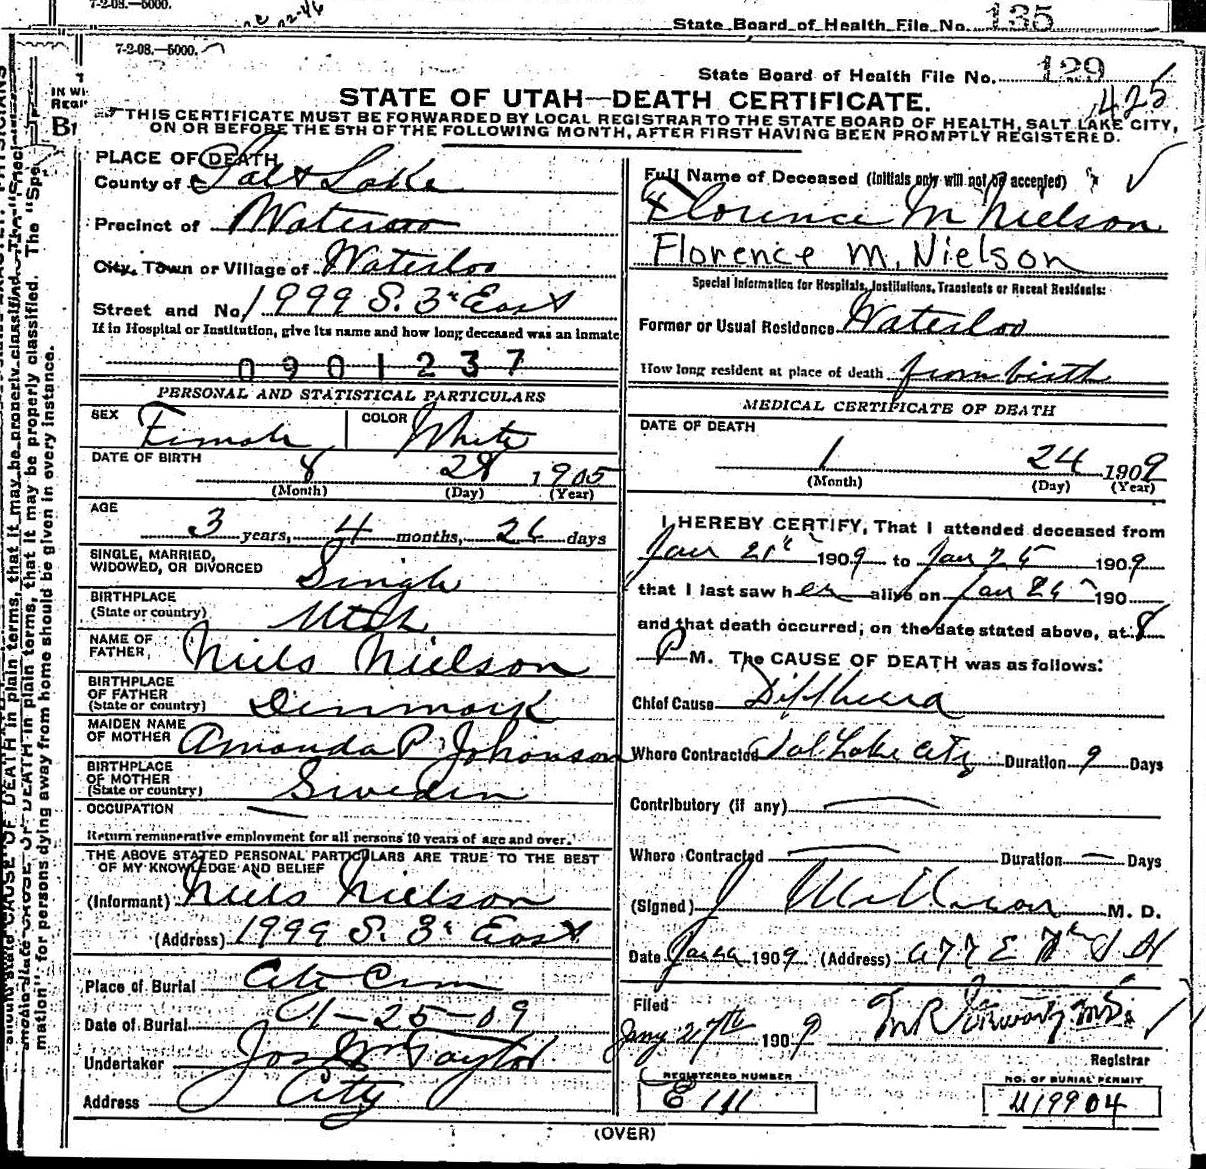 7-2-08.—5000.
State Board of Health File No. 135
7-2-08.—5000.
State Board of Health File No. 129
425
STATE OF UTAH—DEATH CERTIFICATE.
THIS CERTIFICATE MUST BE FORWARDED BY LOCAL REGISTRAR TO THE STATE BOARD OF HEALTH, SALT LAKE CITY,
ON OR BEFORE THE 5TH OF THE FOLLOWING MONTH, AFTER FIRST HAVING BEEN PROMPTLY REGISTERED.
PLACE OF DEATH
County of Salt Lake
Precinct of Waterloo
City, Town or Village of Waterloo
Street and No. 1999 S. 3rd East
If in Hospital or Institution, give its name and how long deceased was an inmate
0901237
PERSONAL AND STATISTICAL PARTICULARS
SEX Female COLOR White
DATE OF BIRTH
8 28 1905
(Month) (Day) (Year)
AGE
3 years, 4 months, 26 days
SINGLE, MARRIED,
WIDOWED, OR DIVORCED Single
BIRTHPLACE
(State or country) Utah
NAME OF
FATHER Niels Nielson
BIRTHPLACE
OF FATHER
(State or country) Denmark
MAIDEN NAME
OF MOTHER Amanda P. Johanson
BIRTHPLACE
OF MOTHER
(State or country) Sweden
OCCUPATION
Return remunerative employment for all persons 10 years of age and over.
THE ABOVE STATED PERSONAL PARTICULARS ARE TRUE TO THE BEST
OF MY KNOWLEDGE AND BELIEF
(Informant) Niels Nielson
(Address) 1999 S. 3rd East
Place of Burial City Cem
Date of Burial 01-25-09
Undertaker Jos Wm Taylor
Address City
Full Name of Deceased (Initials only will not be accepted)
Florence M Nielson
Florence M. Nielson
Special Information for Hospitals, Institutions, Transients or Recent Residents:
Former or Usual Residence Waterloo
How long resident at place of death from birth
MEDICAL CERTIFICATE OF DEATH
DATE OF DEATH
1 24 1909
(Month) (Day) (Year)
I HEREBY CERTIFY, That I attended deceased from
Jan 21st 1909 to Jan 25 1909
that I last saw her alive on Jan 24 190
and that death occurred, on the date stated above, at 8
P M. The CAUSE OF DEATH was as follows:
Chief Cause Diptheria
Where Contracted Salt Lake City Duration 9 Days
Contributory (if any)
Where Contracted Duration Days
(Signed) J M. D.
Date Jan 1909 (Address)
Filed
Jany 27th 1909
Registrar
REGISTERED NUMBER
E 111
NO. OF BURIAL PERMIT
U19904
(OVER)
mation" for persons dying away from home should be given in every instance.